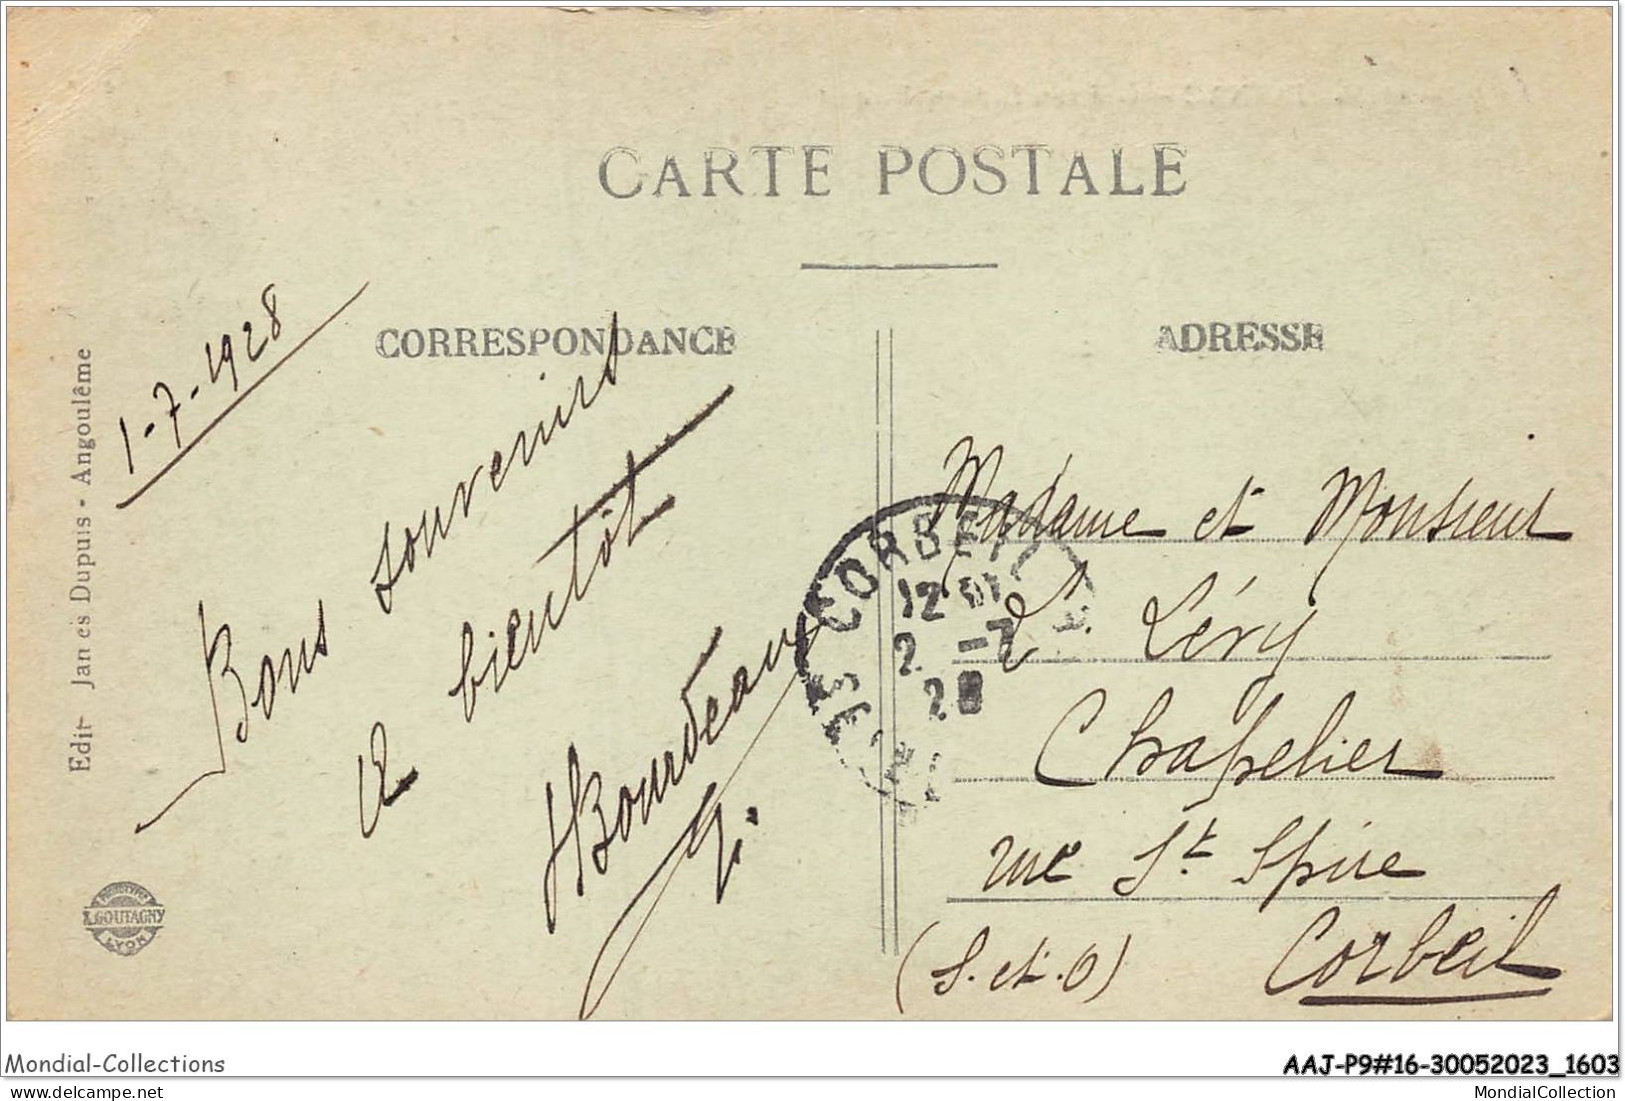 CARTE POSTALE
CORRESPONDANCE
ADRESSE
1-7-1928
Bons souvenirs
à bientôt
HBourdeau
Madame et Monsieur
L. Lévy
Chapelier
rue St. Spire
(S.et.O) Corbeil
CORBEIL
12
2 -7
28
Edit Jan es Dupuis - Angoulême
PHOTOTYPIE
GOUTAGNY
LYON
Mondial-Collections
AAJ-P9#16-30052023_1603
MondialCollection